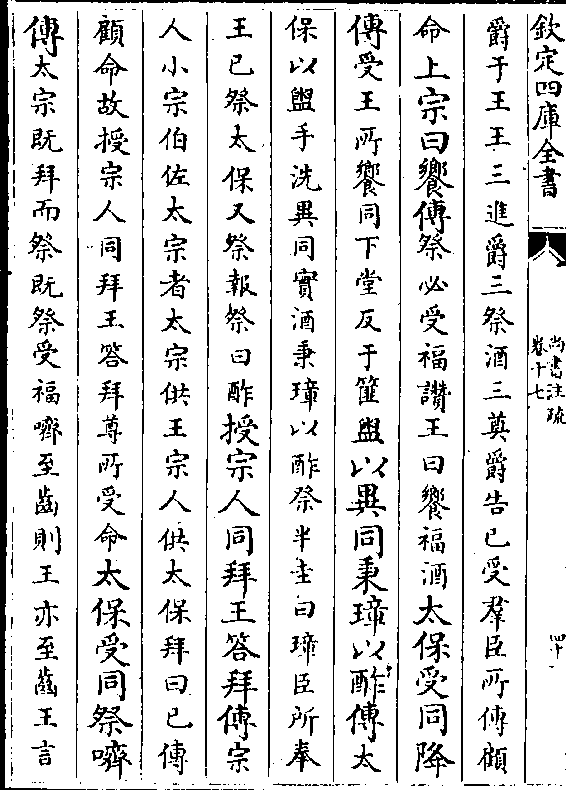 欽定四庫全書
尚書注疏
卷十七
爵于王王三進爵三祭酒三奠爵告已受羣臣所傳顧
命上宗曰饗傳祭必受福讃王曰饗福酒太保受同降
傳受王所饗同下堂反于篚盥以異同秉璋以酢傳太
保以盥手洗異同實酒秉璋以酢祭半圭曰璋臣所奉
王已祭太保又祭報祭曰酢授宗人同拜王答拜傳宗
人小宗伯佐太宗者太宗供王宗人供太保拜曰已傳
顧命故授宗人同拜王答拜尊所受命太保受同祭嚌
傳太宗既拜而祭既祭受福嚌至齒則王亦至齒王言